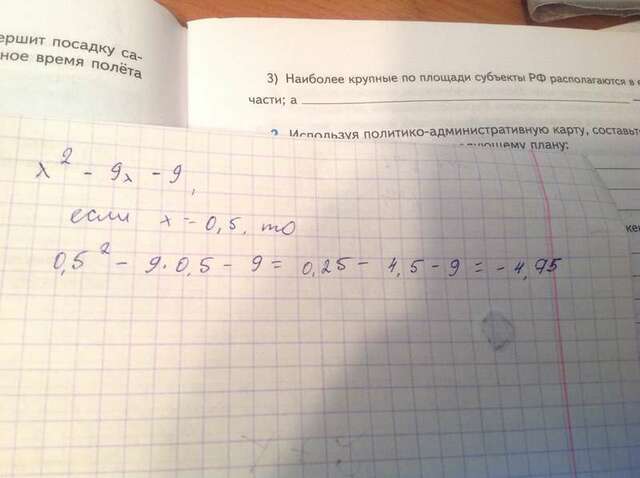 ершит посадку са-
ное время полёта
3) Наиболее крупные по площади субъекты РФ располагаются в
части; а
2. Используя политико-административную карту, составьте
плану:
x² - 9x - 9,
если x = 0,5, то
0,5² - 9·0,5 - 9 = 0,25 - 4,5 - 9 = -4,95